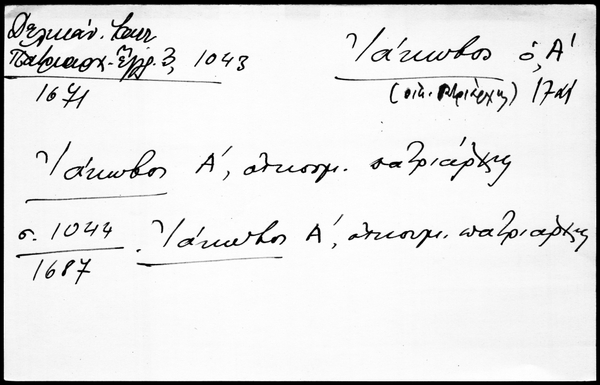 Δελικάν.
Πατριαρχ. Ἔγγρ. 3, 1043
1671
Ἰάκωβος ὁ Α΄
(οἰκ. πατριάρχης) 17
Ἰάκωβος Α΄, οἰκουμ. πατριάρχης
σ. 1044
1687
Ἰάκωβος Α΄, οἰκουμ. πατριάρχης